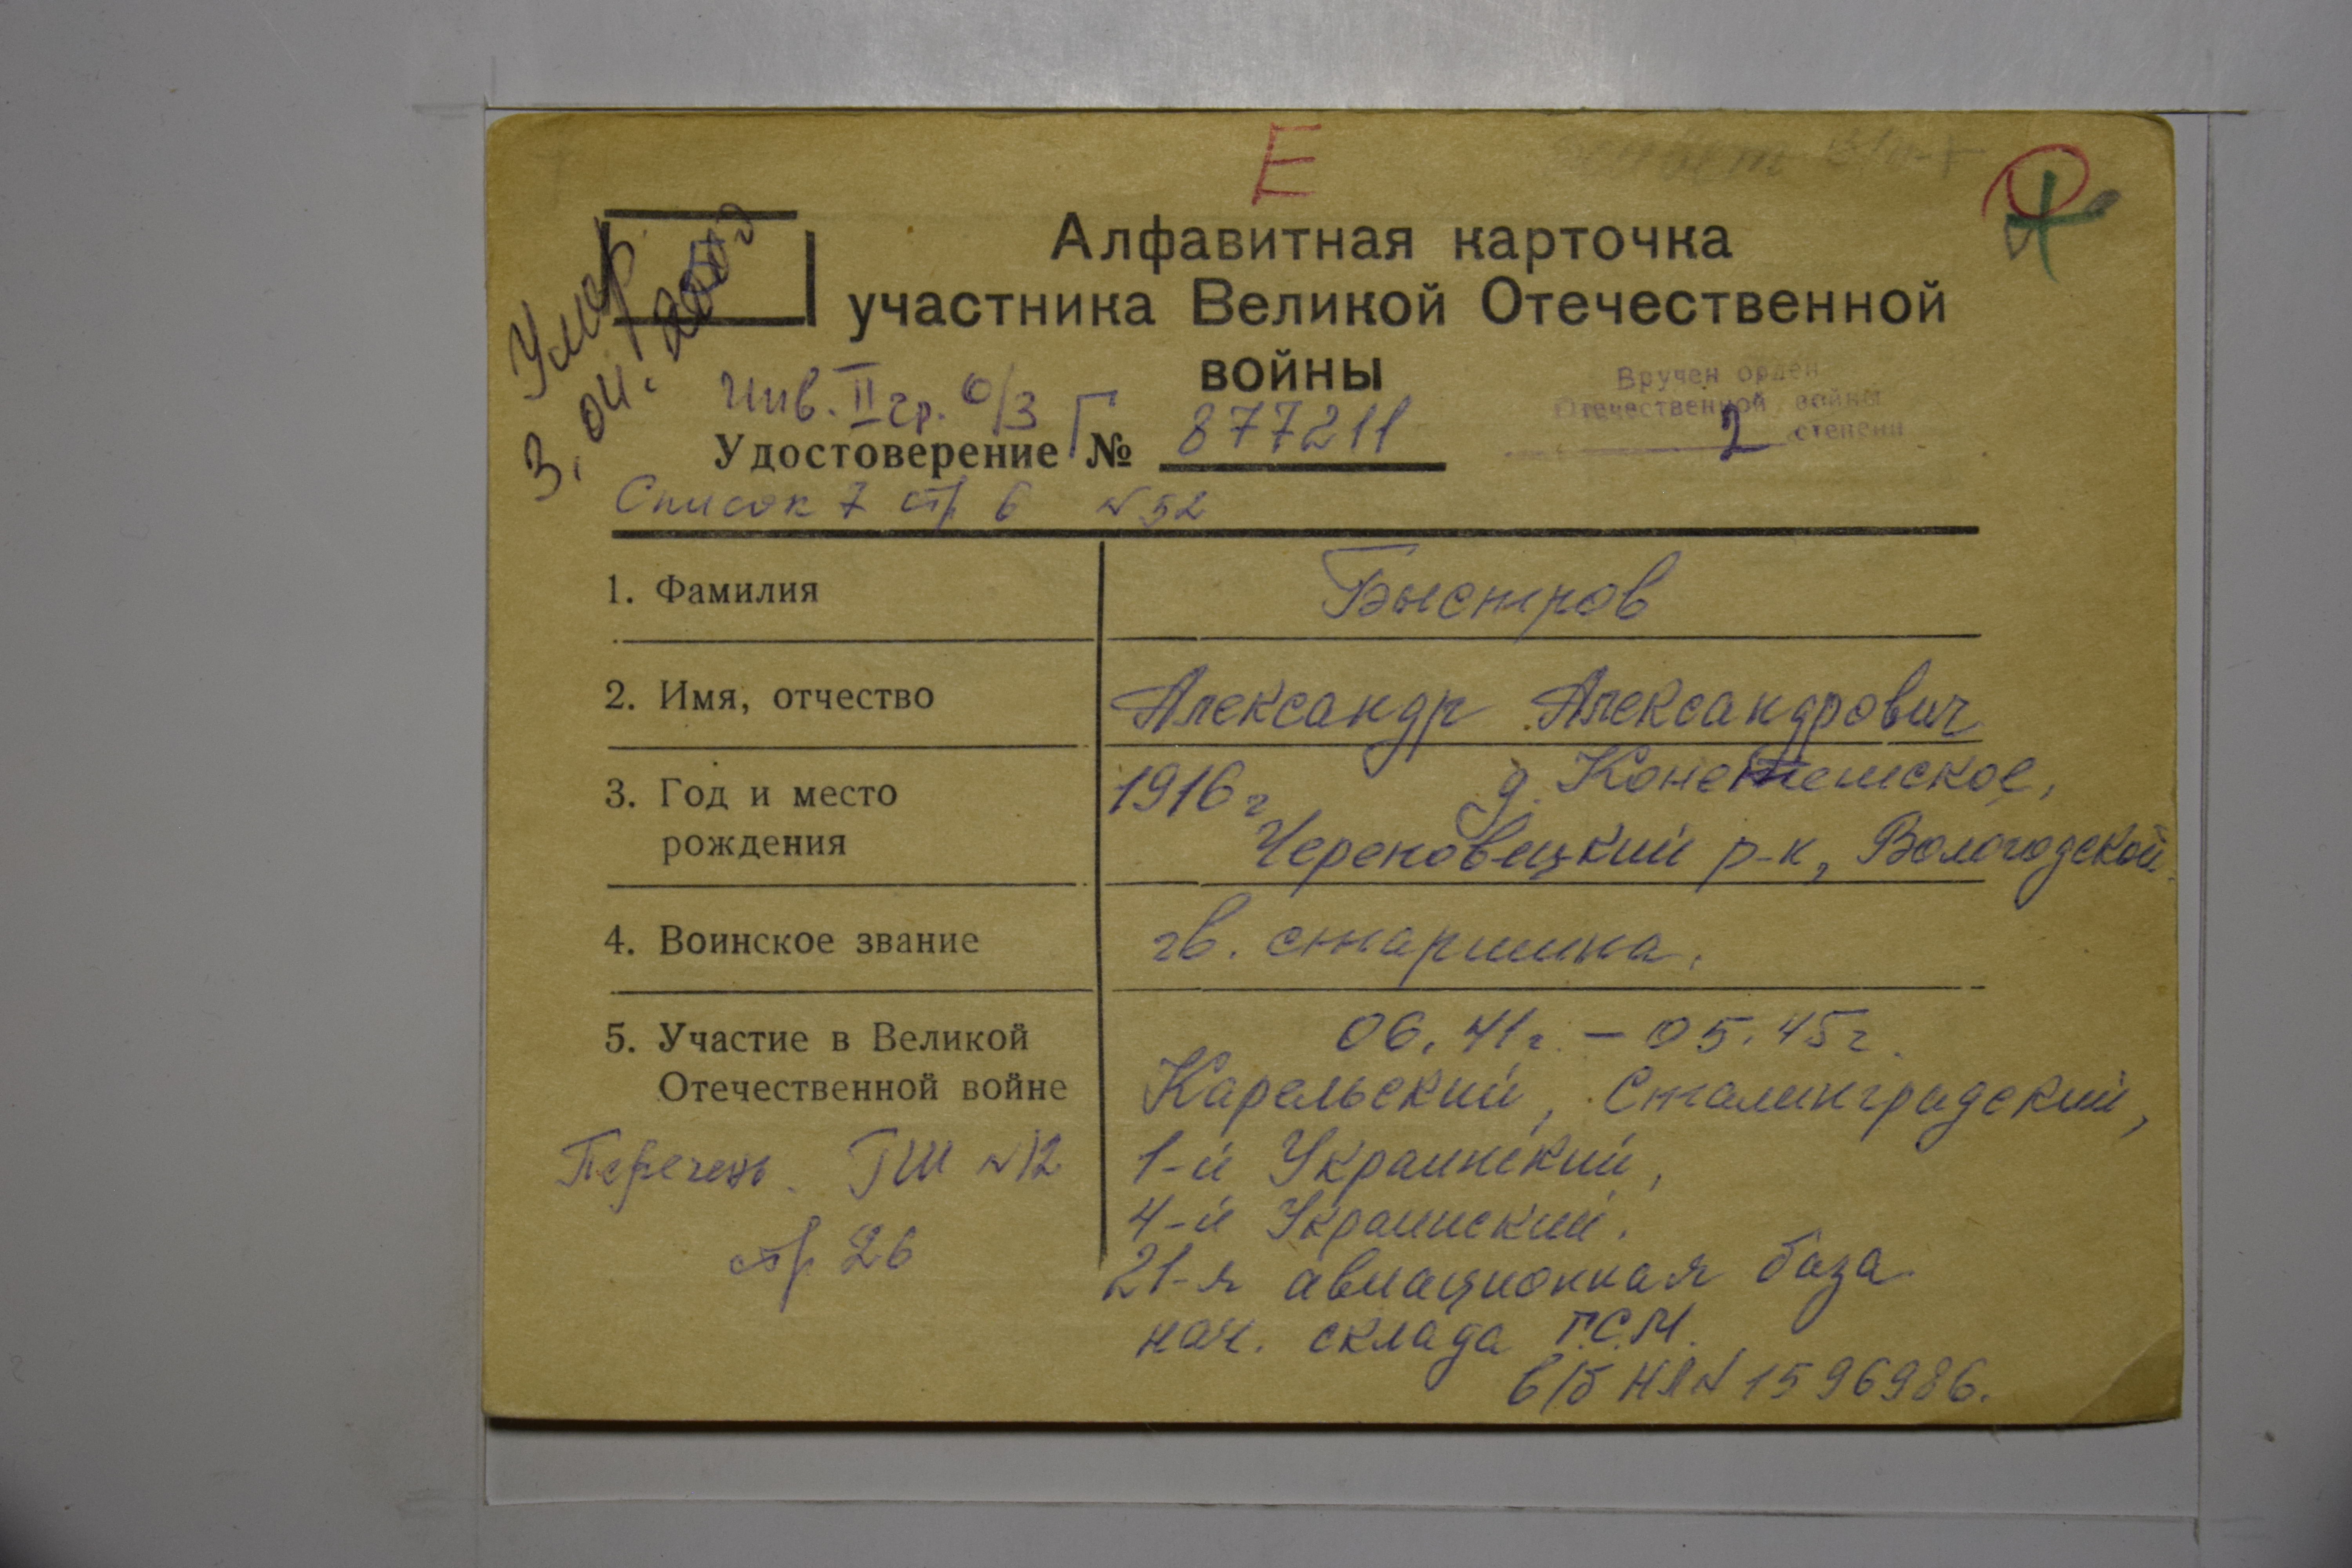 Е
Алфавитная карточка
участника Великой Отечественной
войны
Умер
3. 04.
Инв. II гр. о/з
Вручен орден
Отечественной войны
2 степени
Удостоверение Г № 877211
Список 7 стр 6 №52
1. Фамилия
Быстров
2. Имя, отчество
Александр Александрович
3. Год и место
рождения
1916 г д.
Череповецкий р-н, Вологодской
4. Воинское звание
гв. старшина.
5. Участие в Великой
Отечественной войне
06.41г. – 05.45г.
Карельский, Сталинградский,
1-й Украинский,
4-й Украинский.
21-я авиационная база
нач. склада Г.С.М.
в/б НЯ№ 1596986.
Перечень ГШ №12
стр 26